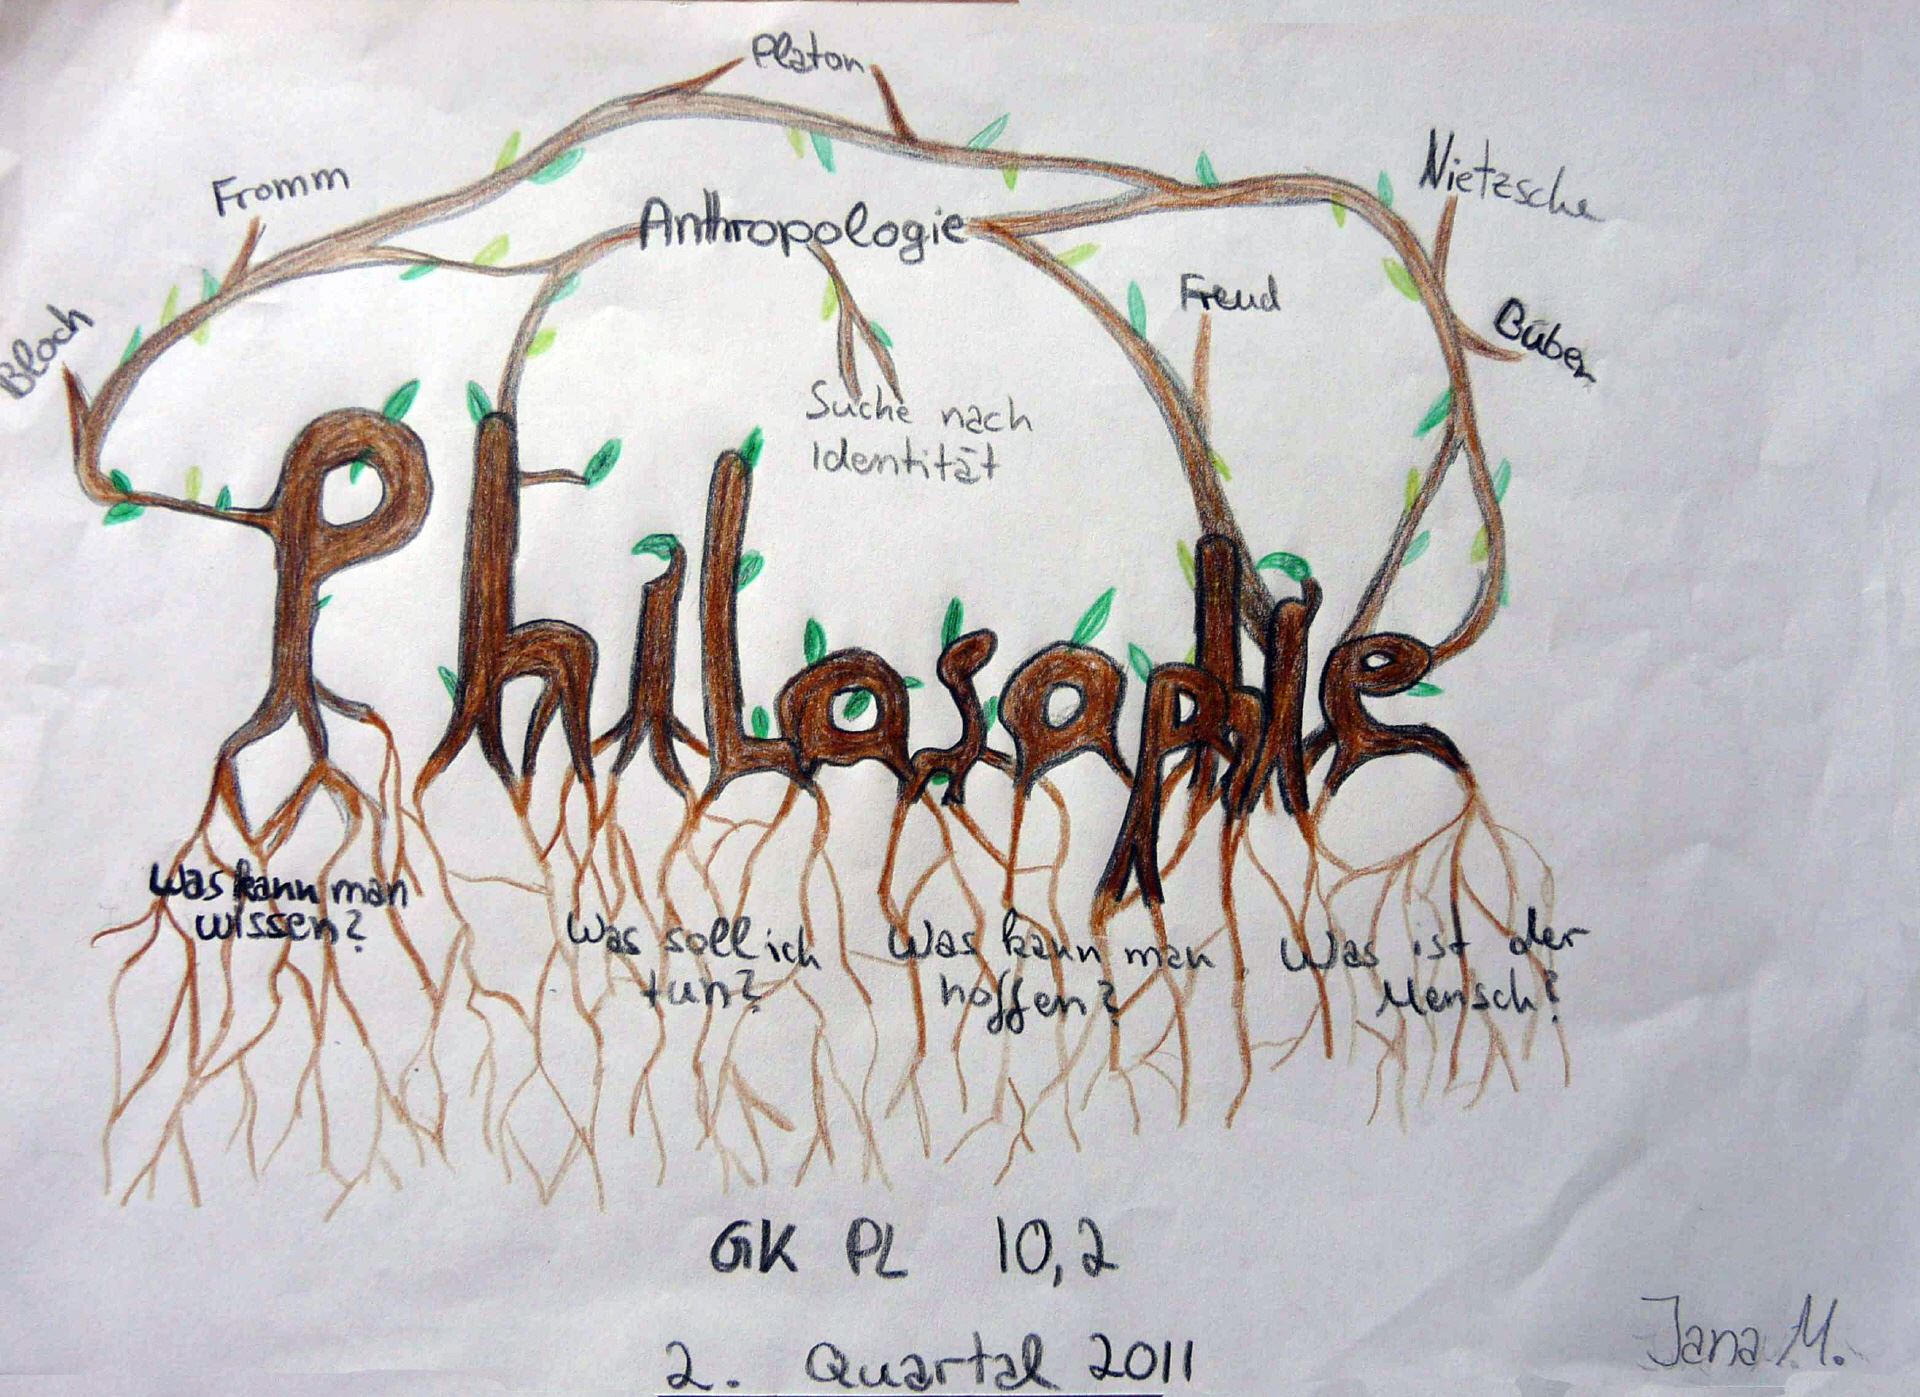 Platon
Nietzsche
Fromm
Anthropologie
Freud
Buber
Bloch
Suche nach
Identität
Philosophie
Was kann man
wissen?
Was soll ich
tun?
Was kann man
hoffen?
Was ist der
Mensch?
GK PL 10,2
2. Quartal 2011
Jana M.